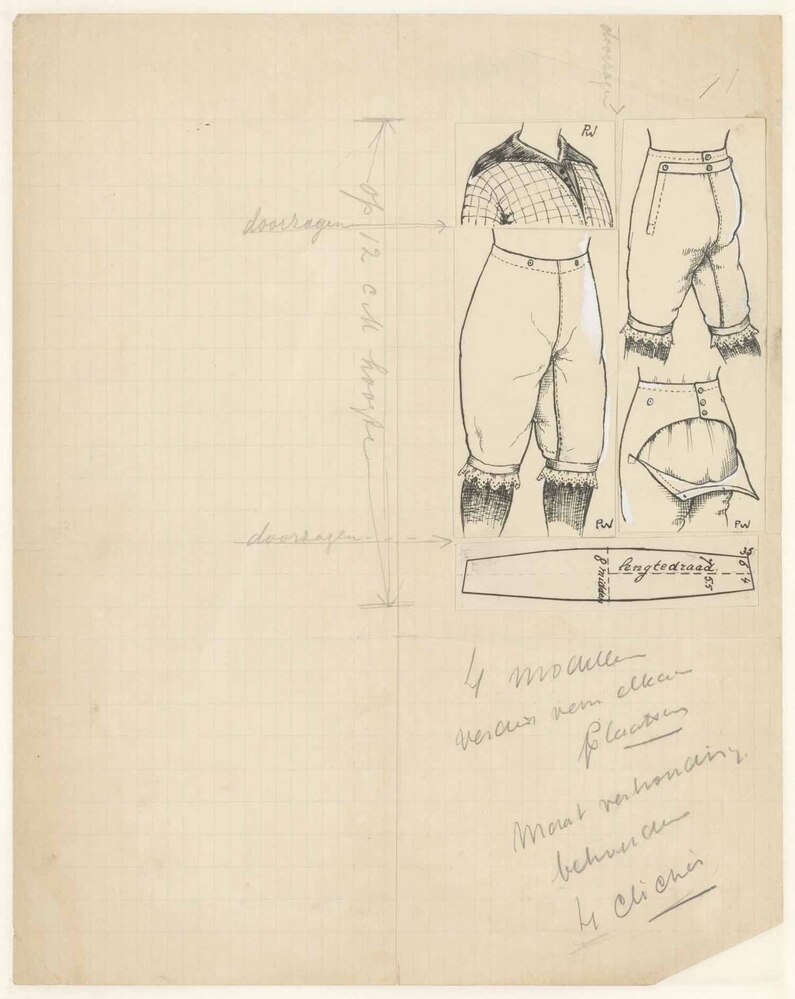 doorzagen
11
PW
doorzagen
op 12 cM hoogte
doorzagen
PW
PW
lengtedraad
8 midden
7
55
3.5
6
4
4 modellen
verder van elkaar
plaatsen
Maat verhouding
behouden
4 cliché's